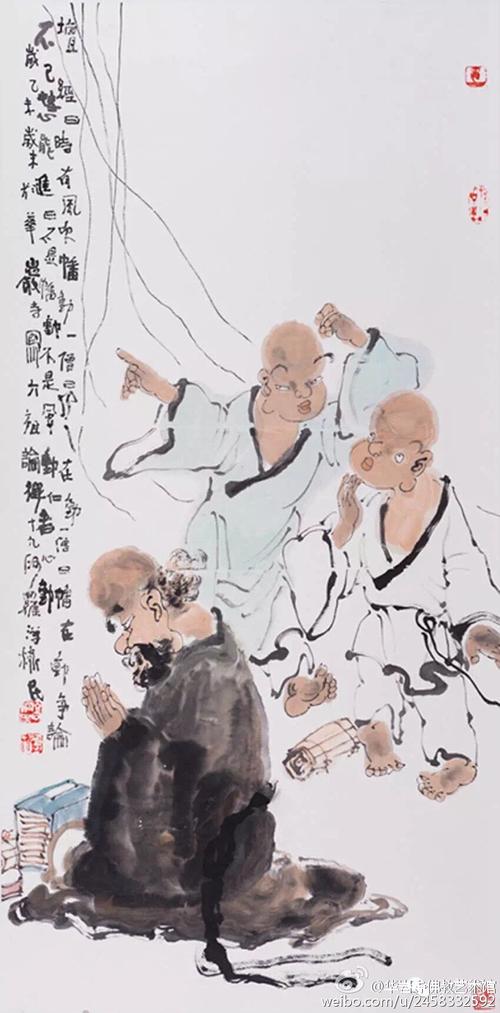 壇經曰時有風吹幡動一僧曰風在動一僧曰幡在動爭論
不已慧能進曰不是幡動不是風動仁者心動
歲乙未歲末於華巖寺圖六祖論禪十九
@华岩佛教艺术馆
weibo.com/u/2458332592